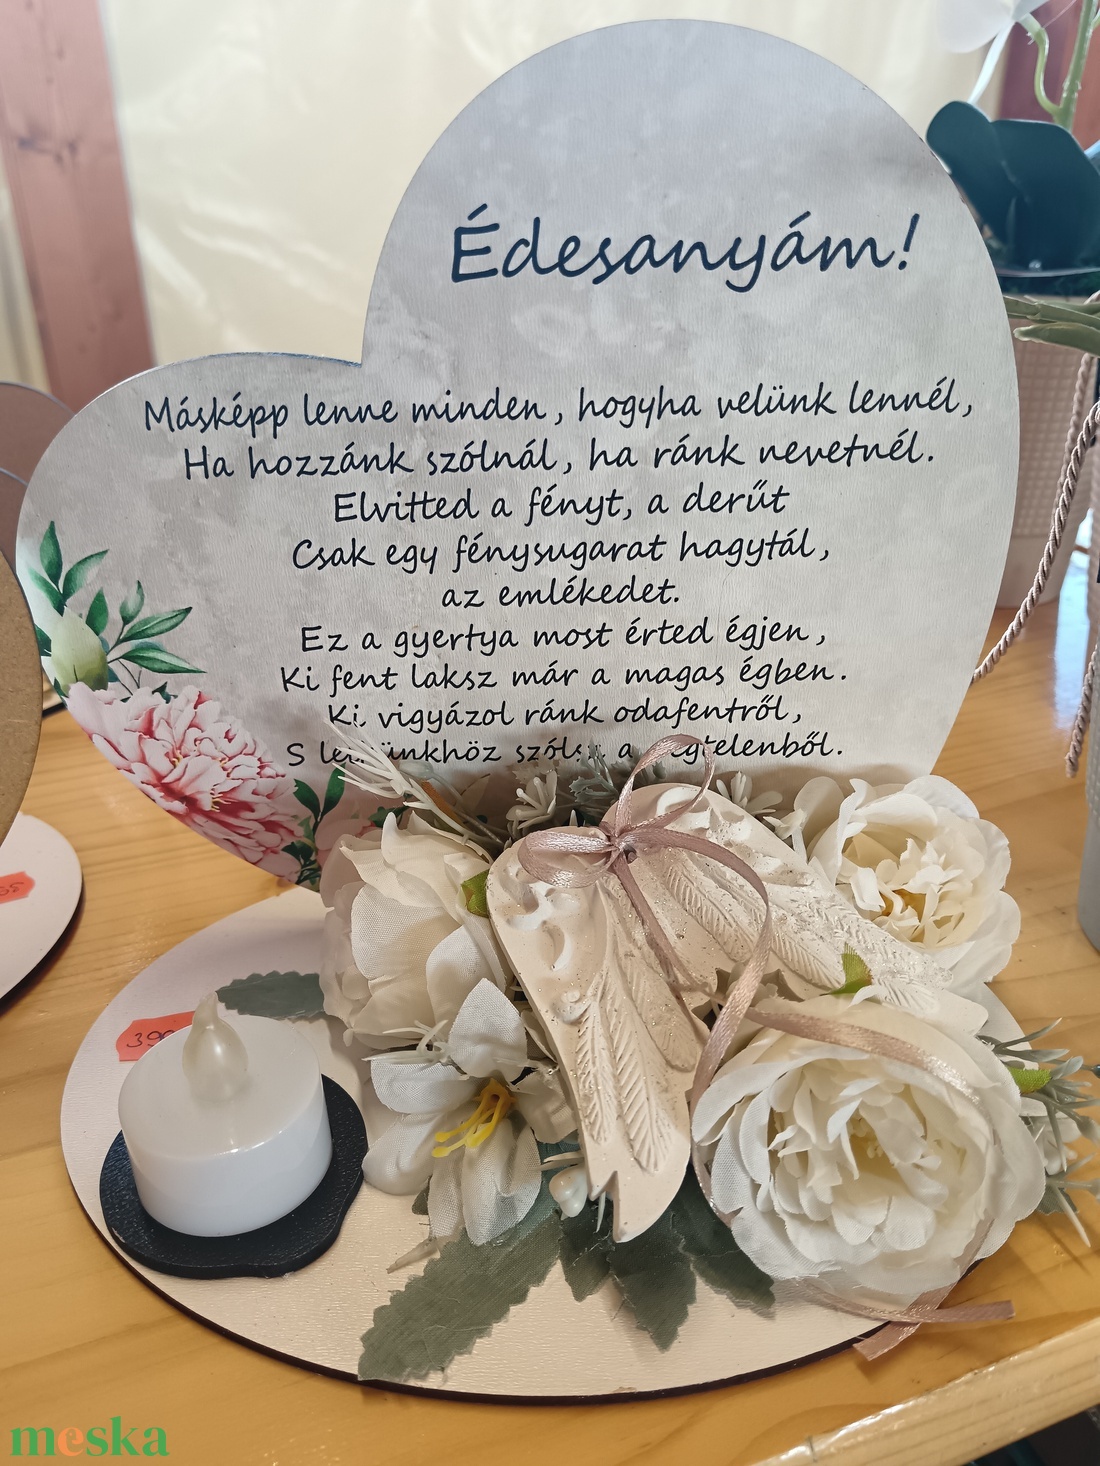 Édesanyám!
Másképp lenne minden, hogyha velünk lennél,
Ha hozzánk szólnál, ha ránk nevetnél.
Elvitted a fényt, a derűt
Csak egy fénysugarat hagytál,
az emlékedet.
Ez a gyertya most érted égjen,
Ki fent laksz már a magas égben.
Ki vigyázol ránk odafentről,
S a
meska